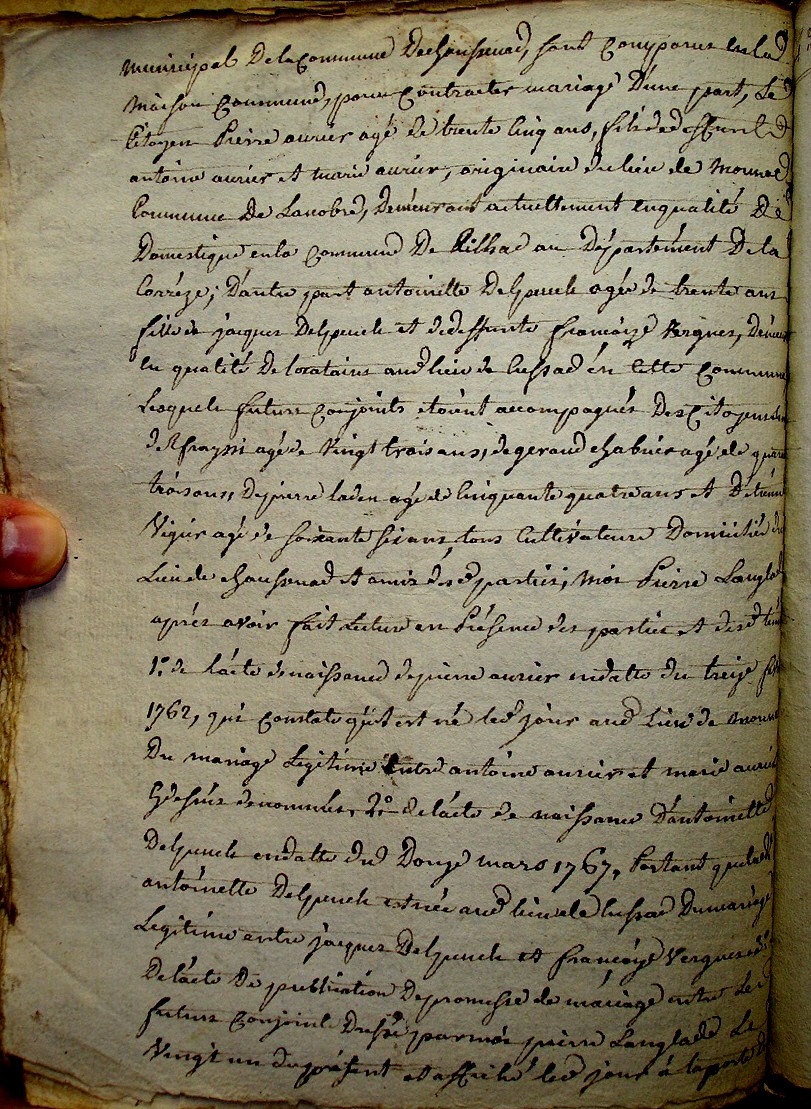 municipal De la Commune De chaussenac, sont Comparus en la
maison Commune, pour Contracter mariage D'une part, Le
Citoyen Pierre aurier agé de trente Cinq ans, fils de deffunt
antoine aurier et marie aurier, originaire du lieu de
Commune De Lanobre, Demeurant actuellement en qualité De
Domestique en la Commune De Rilhac au Département De la
Corrèze; D'autre part antoinette Delpeuch agée de trente ans
fille de jacques Delpeuch et de deffunte françoize Vergnes,
en qualité de locataire aud lieu de lussac en cette Commune
Lesquels futurs Conjoints etoient accompagnés Des Citoyens
agé de Vingt trois ans, de geraud chabrier agé de
trois ans, De pierre laden agé de Cinquante quatre ans et D'etienne
Vigier agé de soixante six ans, tous Cultivateurs Domiciliés du
Lieu de chaussenac et amis des parties, moi Pierre Langlade
après avoir fait Lecture en Présence des parties et des
1°. de l'acte de naissance de pierre aurier en datte du treize
1762, qui Constate qu'il est né led jour aud Lieu de
Du mariage Legitime Entre antoine aurier et marie aurier
Cy dessus denommés, 2°. de l'acte de naissance D'antoinette
Delpeuch en datte du Douze mars 1767, Portant que lad
antoinette Delpeuch est née aud lieu de lussac Du mariage
Legitime entre jacques Delpeuch et françoize Vergnes
De l'acte De publication De promesse de mariage entre Les
futurs Conjoints Dressé par moi pierre Langlade Le
Vingt un du présent et affiché led jour à la porte